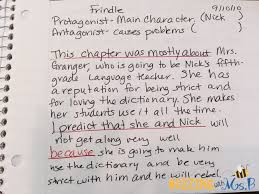 Frindle 9/10/10
Protagonist - Main Character (Nick)
Antagonist - causes problems ( )
This chapter was mostly about Mrs.
Granger, who is going to be Nick's fifth-
grade Language teacher. She has
a reputation for being strict and
for loving the dictionary. She makes
her students use it all the time.
I predict that she and Nick will
not get along very well
because she is going to make him
use the dictionary and be very
strict with him and he will rebel.
BUZZING with Ms. B